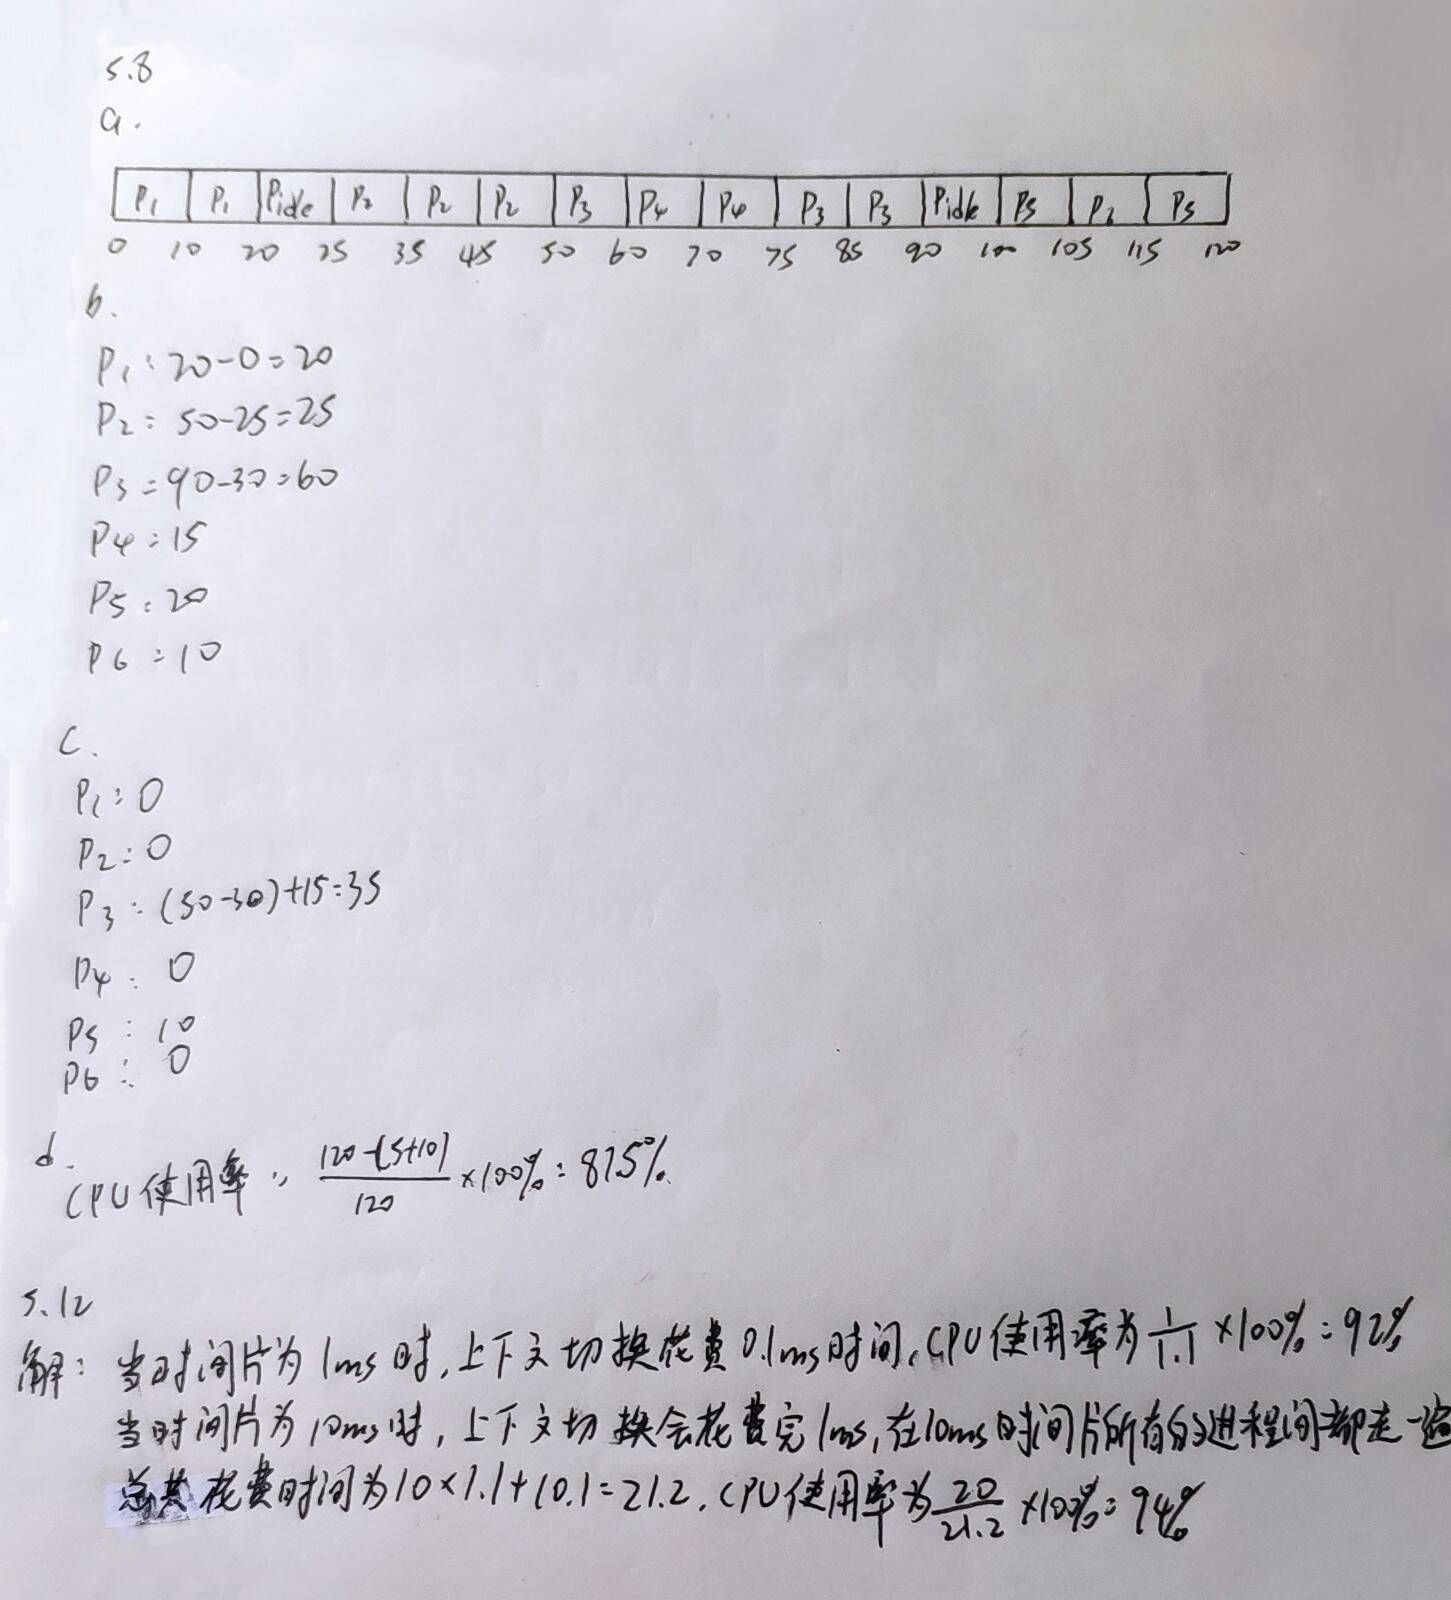 5.8
a.
P1 P1 Pidle P2 P2 P2 P3 P4 P4 P3 P3 Pidle P5 P6 P5
0 10 20 25 35 45 50 60 70 75 85 90 100 105 115 120
b.
P1: 20-0=20
P2: 50-25=25
P3=90-30=60
P4:15
P5:20
P6:10
c.
P1:0
P2:0
P3:(50-30)+15=35
P4:0
P5:10
P6:0
d.
CPU使用率: 120-(5+10)/120 ×100%=87.5%.
5.12
解: 当时间片为1ms时,上下文切换花费0.1ms时间,CPU使用率为 1/1.1 ×100%=92%
当时间片为10ms时,上下文切换会花费完1ms,在10ms时间片所有的进程间都走一遍
总共花费时间为10×1.1+10.1=21.2.CPU使用率为 20/21.2 ×100%=94%